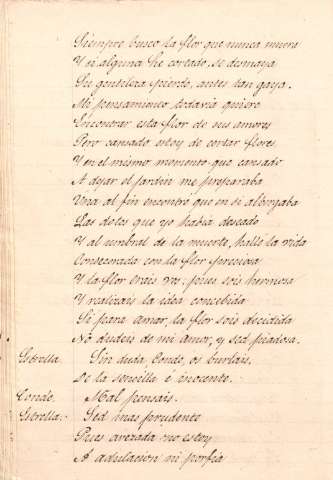 Siempre busco la flor que nunca muere
Y si alguna he cortado, se desmaya
Su gentileza pierde, antes tan gaya.
Mi pensamiento, todavia quiere
Encontrar esta flor de sus amores
Pero cansado estoy de cortar flores
Y en el mismo momento que cansado
A dejar el jardin me preparaba
Una al fin encontre que en si albergaba
Las dotes que yo habia deseado
Y al umbral de la muerte, hallé la vida
Consecrada con la flor preciosa
Y la flor erais vos. pues sois hermosa
Y realizais la idea concebida
Si para amar, la flor sois decidida
No dudeis de mi amor, y sed piadosa.
Estrella. Sin duda, Conde, os burlais.
De la sencilla é inocente.
Conde. Mal pensais.
Estrella. Sed mas prudente
Pues avezada no estoy
A adulacion ni porfia